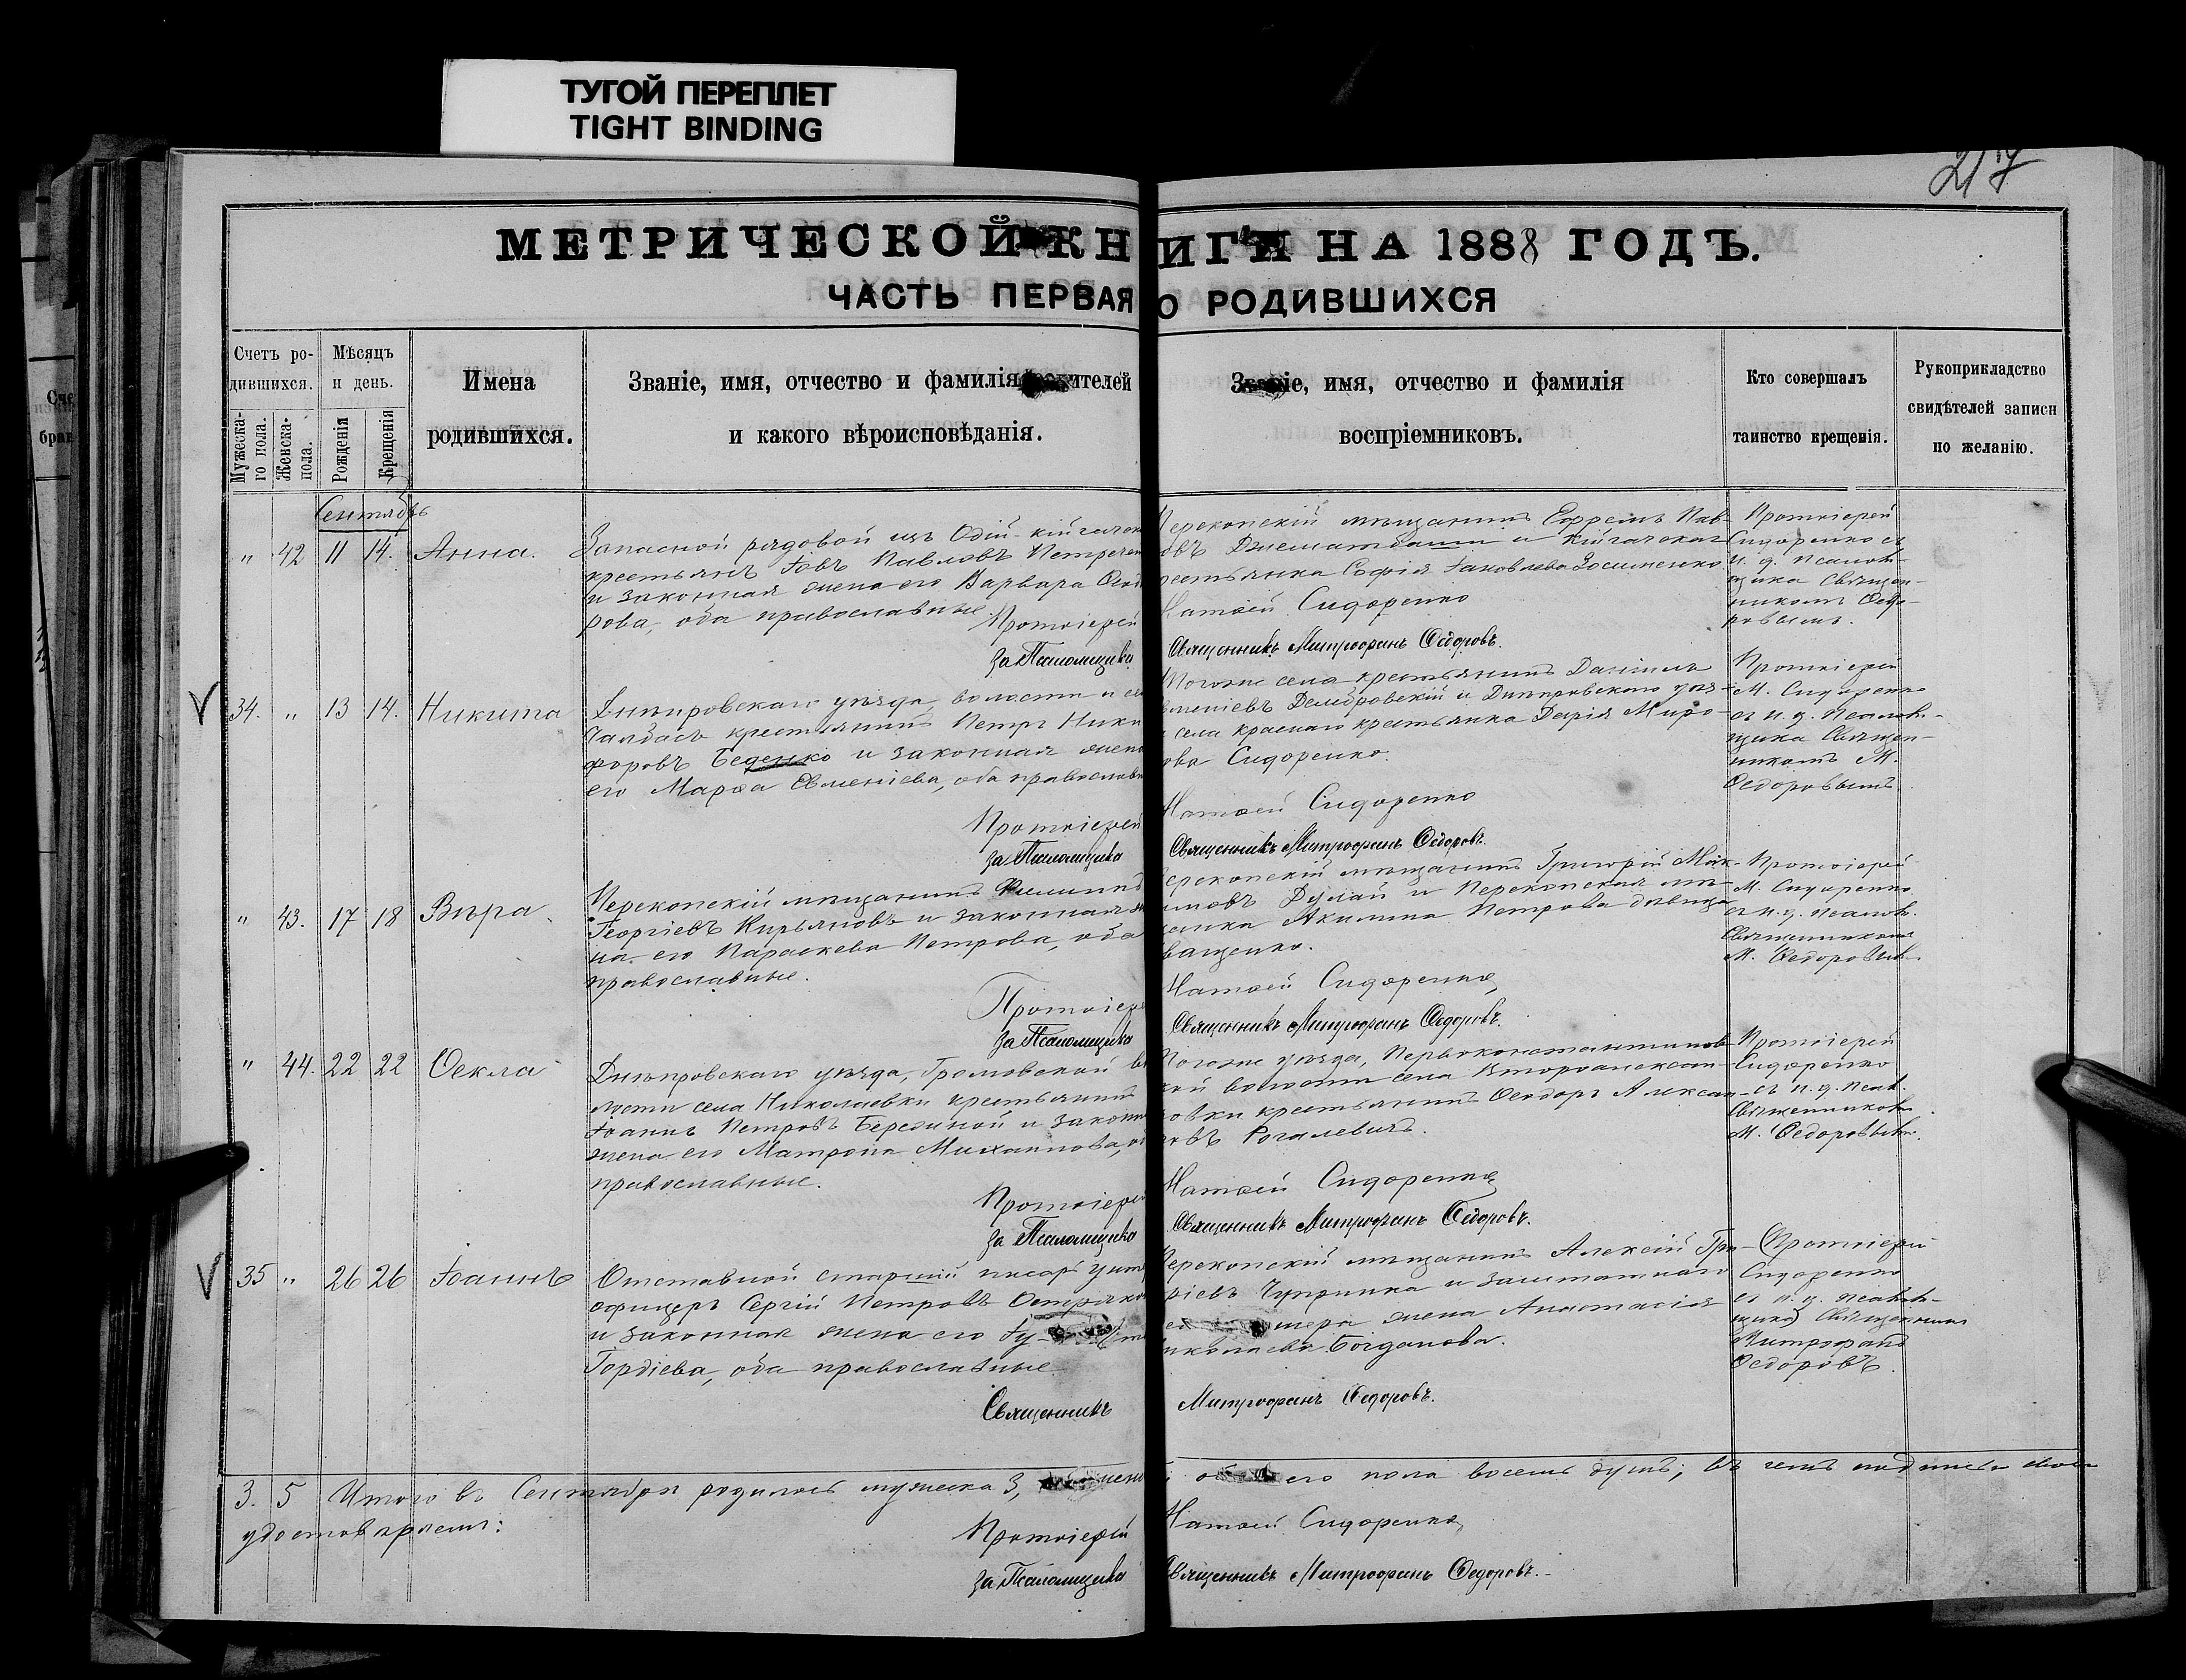 ТУГОЙ ПЕРЕПЛЕТ
TIGHT BINDING
217
МЕТРИЧЕСКОЙ КНИГИ НА 1888 ГОДЪ.
ЧАСТЬ ПЕРВАЯ О РОДИВШИХСЯ
Счетъ родившихся.
Мужеска-го пола.
Женска- пола.
Мѣсяцъ и день.
Рожденія
Крещенія
Имена родившихся.
Званіе, имя, отчество и фамилія родителей
и какого вѣроисповѣданія.
Званіе, имя, отчество и фамилія
воспріемниковъ.
Кто совершалъ
таинство крещенія.
Рукоприкладство
свидѣтелей записи
по желанію.
Сентябрь
" 42 11 14. Анна.
Запасной рядовой изъ
крестьянъ Іовъ Павловъ
и законная жена его Варвара
рова, оба православные.
Протоіерей
За Псаломщика
Перекопскій мѣщанинъ Ефремъ Пав-
овъ и
рестьянка Софія Іаковлева
Матѳей Сидоренко
Священникъ Митрофанъ Ѳедоровъ.
Протоіерей
Сидоренко съ
и. д. псалом-
щика Священ-
никомъ Ѳедо-
ровымъ.
34. " 13 14. Никита
Днѣпровскаго уѣзда, волости и се
Чалбасъ крестьянинъ Петръ Ники
форовъ Беденко и законная жена
его Марѳа Евменіева, оба православн
Протоіерей
За Псаломщика
Тогоже села крестьянинъ Даніилъ
вменіевъ и Днѣпровскаго уѣз-
села Краснаго крестьянка Дарія Миро-
ова Сидоренко.
Матѳей Сидоренко
Священникъ Митрофанъ Ѳедоровъ.
Протоіерей
М. Сидоренко
съ и. д. Псалом-
щика Священ-
никомъ М.
Ѳедоровымъ
" 43. 17 18 Вѣра.
Перекопскій мѣщанинъ Филиппъ
Георгіевъ Кирьяновъ и законная же
на его Параскева Петрова, оба
православные.
Протоіере
За Псаломщика
ерекопскій мѣщанинъ Григорій Мак-
имовъ Дулай и Перекопская мѣ-
щанка Акилина Петрова дѣвица
ващенко.
Матѳей Сидоренко
Священникъ Митрофанъ Ѳедоровъ.
Протоіерей
М. Сидоренко
съ и. д. псалом.
Священникомъ
М. Ѳедоровымъ
" 44. 22 22 Ѳекла
Днѣпровскаго уѣзда, Громовской во
лости села Николаевки крестьянинъ
Іоаннъ Петровъ и законн
жена его Матрона Михаилова, об
православные.
Протоіерей
За Псаломщика
Тогоже уѣзда, Первоконстантинов-
кой волости села Второалексан-
овки крестьянинъ Ѳеодоръ Алексан-
ровъ Рогалевичъ.
Матѳей Сидоренко
Священникъ Митрофанъ Ѳедоровъ.
Протоіерей
Сидоренко
съ и. д. псал.
Священникомъ
М. Ѳедоровымъ.
35 " 26 26 Іоаннъ
Отставной старшій писарь унт
офицеръ Сергій Петровъ Остряко
и законная жена его
Гордіева, оба православные
Священникъ
Перекопскій мѣщанинъ Алексій Гри-
ріевъ Чупринка и заштатнаго
жена Анастасія
иколаева Богданова.
Митрофанъ Ѳедоровъ.
Протоіерей
Сидоренко
съ и. д. псалом-
щика Священникъ
Митрофанъ
Ѳедоровъ.
3. 5 Итого въ Сентябрѣ родилось мужеска 3, женс
обоего пола восемь душъ; въ чемъ
удостовѣряемъ:
Протоіерей
За Псаломщика
Матѳей Сидоренко
Священникъ Митрофанъ Ѳедоровъ.